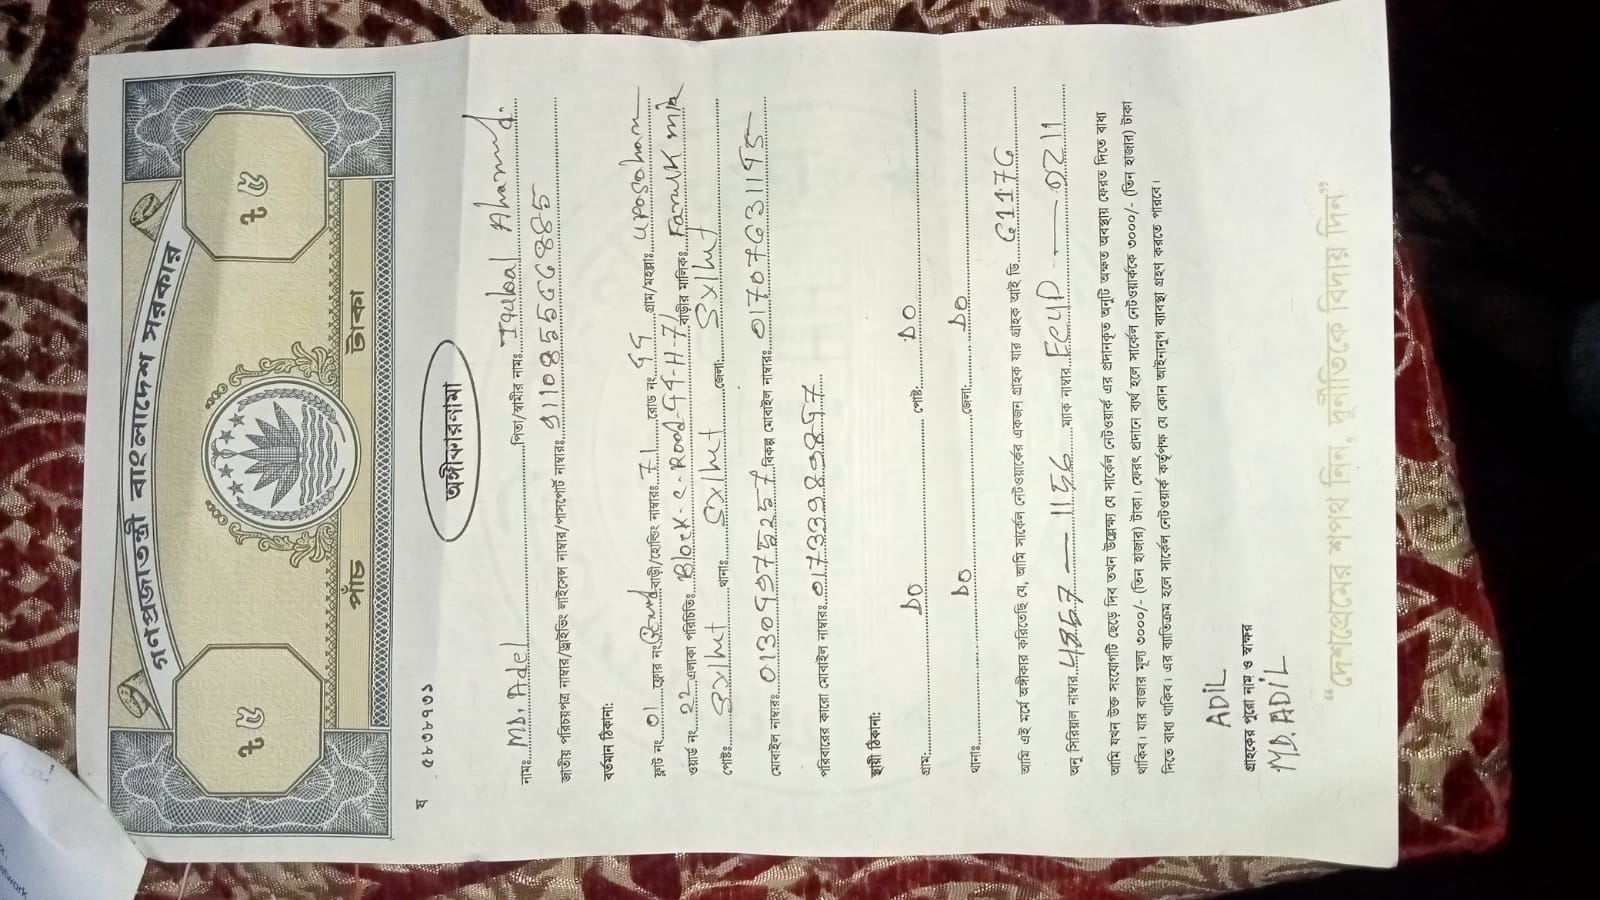 গণপ্রজাতন্ত্রী বাংলাদেশ সরকার
৳ ৫
৳ ৫
পাঁচ টাকা
ষ ৫৮৩৮৭৩১
অঙ্গীকারনামা
নামঃ MD. Adel পিতা/স্বামীর নামঃ Iqubal Ahamed.
জাতীয় পরিচয়পত্র নাম্বার/ড্রাইভিং লাইসেন্স নাম্বার/পাসপোর্ট নাম্বারঃ
বর্তমান ঠিকানা:
ফ্লাট নং 01 ফ্লোর নং বাড়ী/হোল্ডিং নাম্বারঃ 71 রোড নং গ্রাম/মহল্লাঃ uposoham
ওয়ার্ড নং 22 এলাকা পরিচিতিঃ Block-c-Road- বাড়ীর মালিকঃ Faruk
পোষ্টঃ Sylhet থানাঃ Sylhet জেলা: Sylhet
মোবাইল নাম্বারঃ বিকল্প মোবাইল নাম্বারঃ
পরিবারের কারো মোবাইল নাম্বারঃ
স্থায়ী ঠিকানা:
গ্রাম: DO পোষ্ট: DO
থানাঃ DO জেলা: DO
আমি এই মর্মে অঙ্গীকার করিতেছি যে, আমি সার্কেল নেটওয়ার্কের একজন গ্রাহক যার গ্রাহক আই ডি
অনু সিরিয়াল নাম্বার ম্যাক নাম্বার
আমি যখন উক্ত সংযোগটি ছেড়ে দিব তখন উল্লেখ্য যে সার্কেল নেটওয়ার্ক এর প্রদানকৃত অনুটি অক্ষত অবস্থায় ফেরত দিতে বাধ্য
থাকিব। যার বাজার মূল্য ৩০০০/- (তিন হাজার) টাকা। ফেরৎ প্রদানে ব্যর্থ হলে সার্কেল নেটওয়ার্ককে ৩০০০/- (তিন হাজার) টাকা
দিতে বাধ্য থাকিব। এর ব্যতিক্রম হলে সার্কেল নেটওয়ার্ক কর্তৃপক্ষ যে কোন আইনানুগ ব্যাবস্থা গ্রহণ করতে পারবে।
ADIL
গ্রাহকের পুরো নাম ও স্বাক্ষর
MD. ADIL
“দেশপ্রেমের শপথ নিন, দুর্নীতিকে বিদায় দিন”